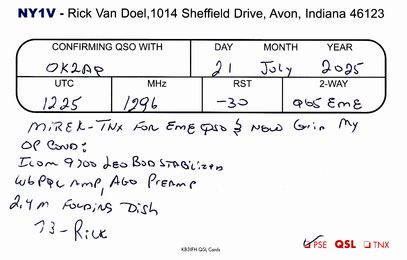 NY1V - Rick Van Doel,1014 Sheffield Drive, Avon, Indiana 46123
CONFIRMING QSO WITH DAY MONTH YEAR
OK2AQ 21 July 2025
UTC MHz RST 2-WAY
1225 1296 -30 Q65 EME
MIREK-TNX FOR EME QSO & NEW Grid My
OP COND:
ICOM 9700 LEO BOD STABILIZED
W6PQL AMP, AGO PREAMP
2.4m FOLDING DISH
73-RICK
KB3IFH QSL Cards
PSE QSL TNX